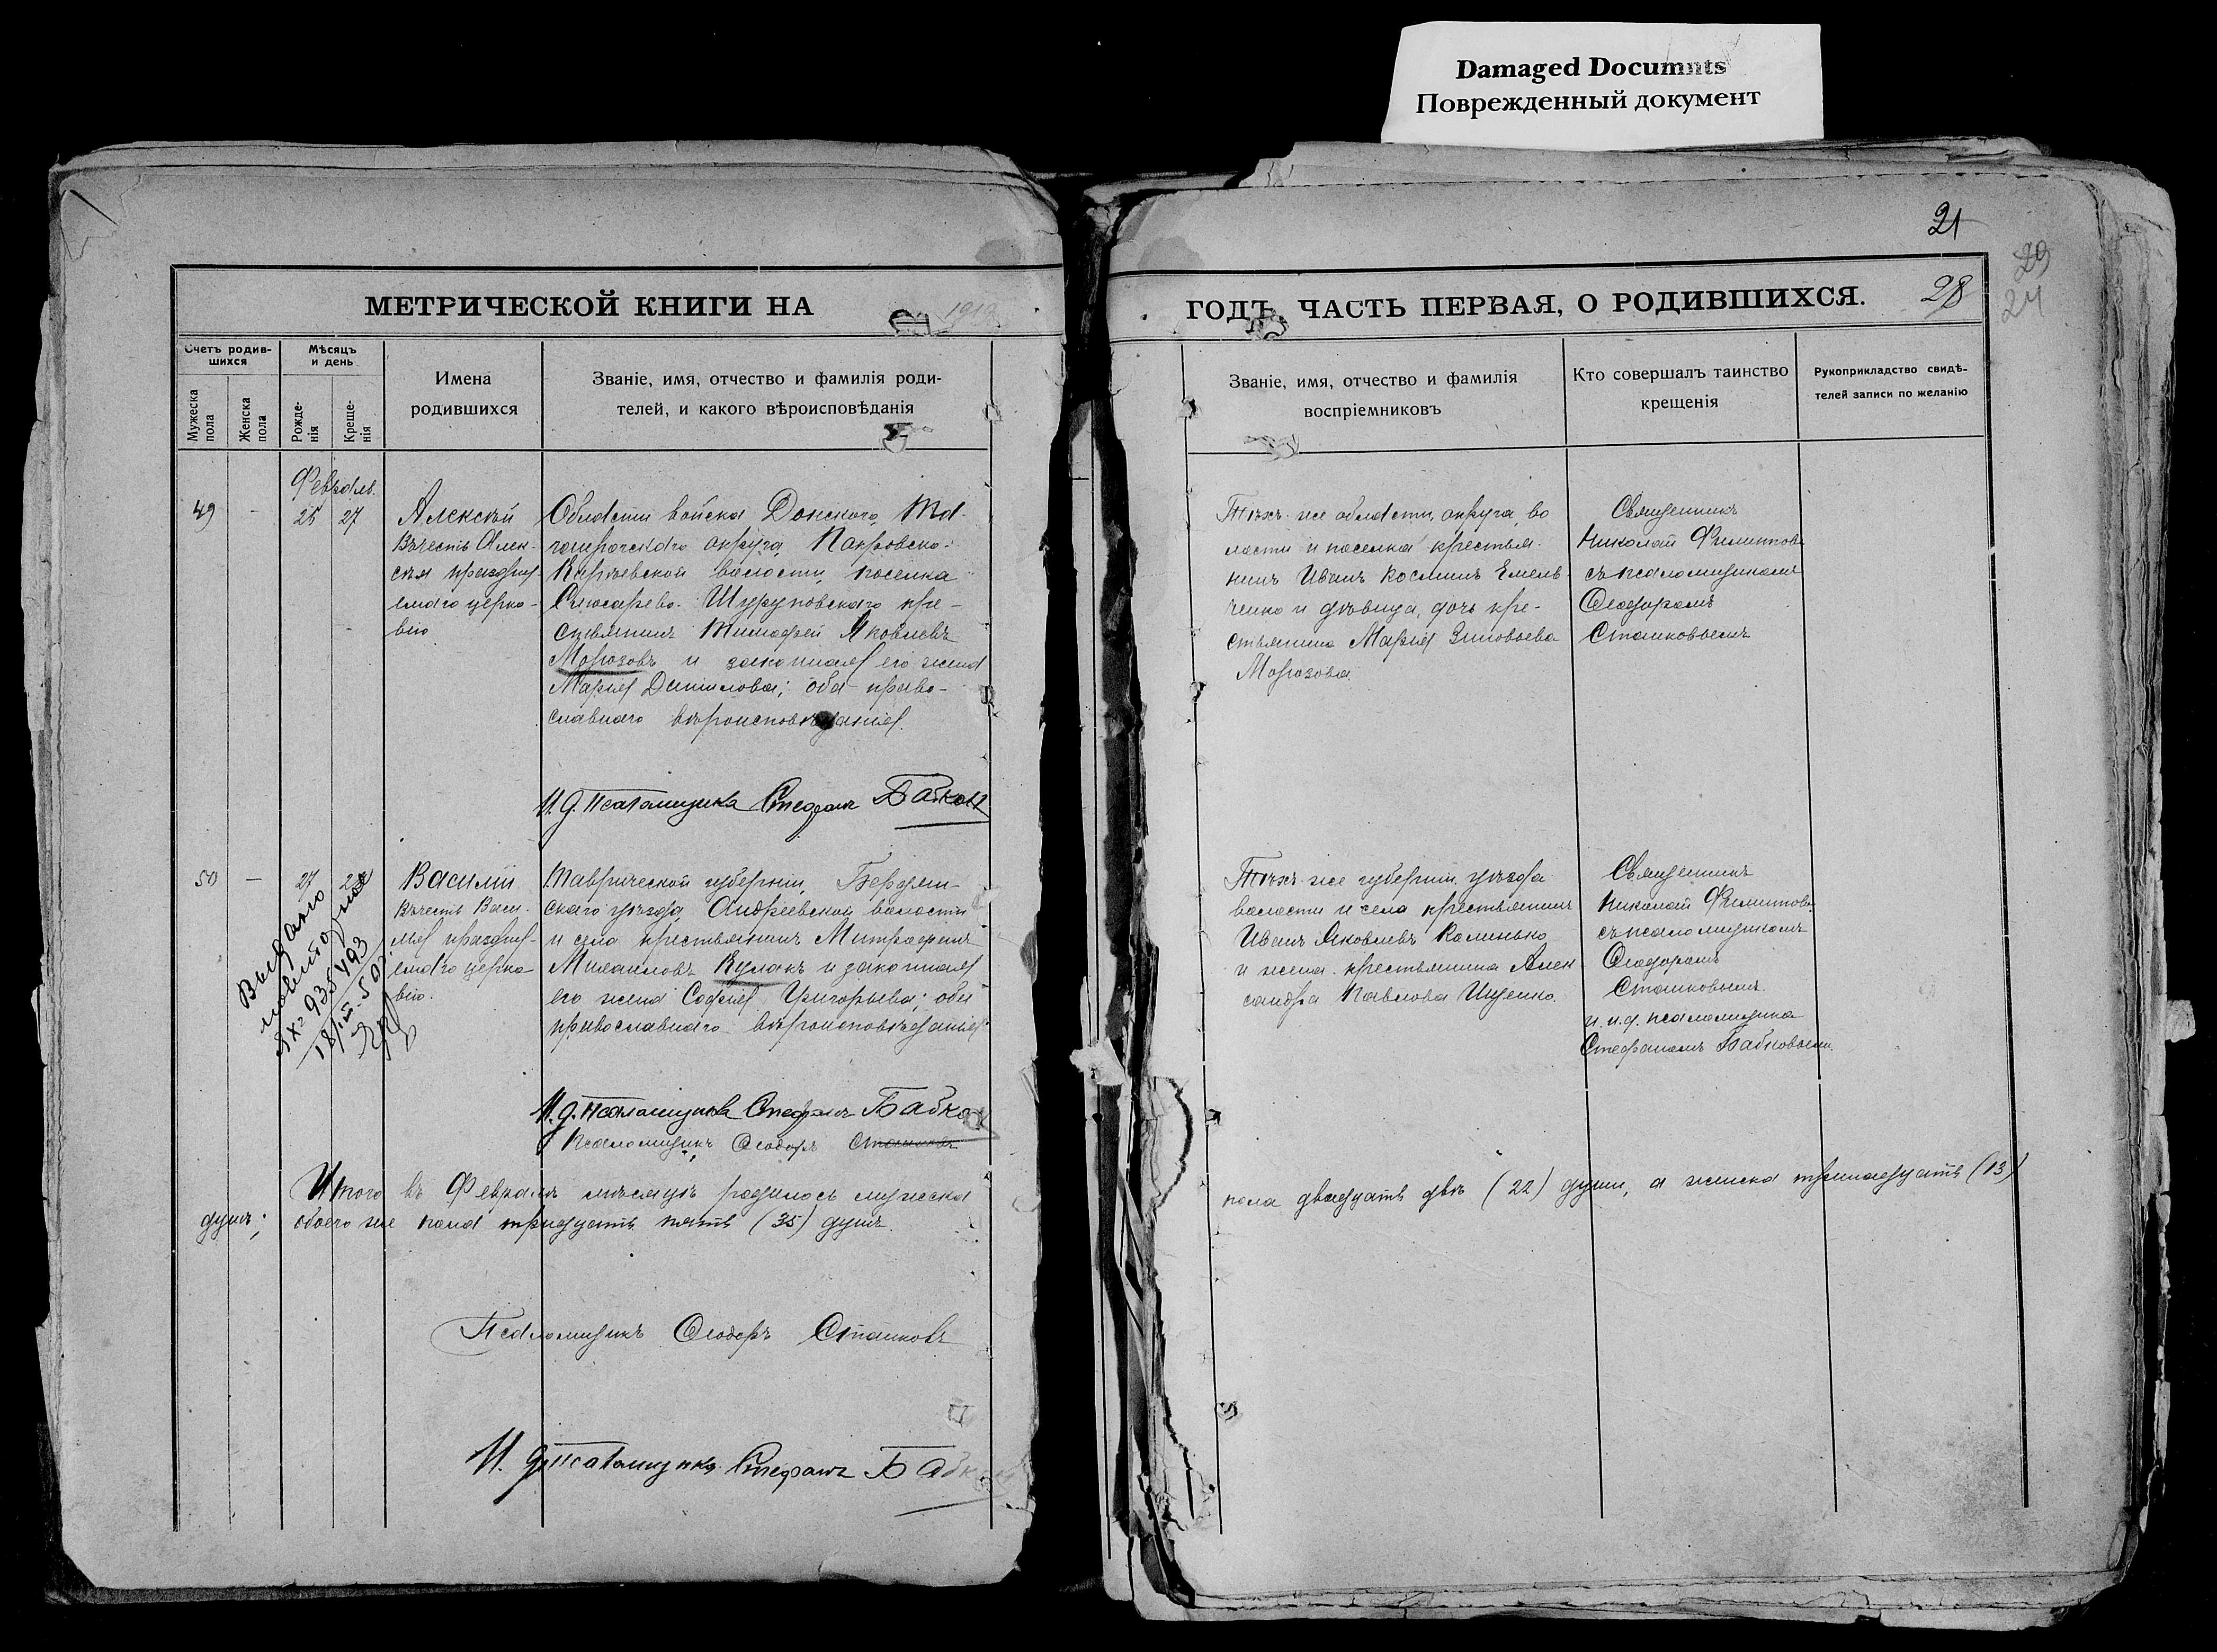 Damaged Documnts
Поврежденный документ
21
29
24
МЕТРИЧЕСКОЙ КНИГИ НА
ГОДЪ, ЧАСТЬ ПЕРВАЯ, О РОДИВШИХСЯ.
28
Счетъ родив-
шихся
Мужеска
пола
Женска
пола
Мѣсяцъ
и день
Рожде-
нія
Креще-
нія
Имена
родившихся
Званіе, имя, отчество и фамилія роди-
телей, и какого вѣроисповѣданія
Званіе, имя, отчество и фамилія
воспріемниковъ
Кто совершалъ таинство
крещенія
Рукоприкладство свидѣ-
телей записи по желанію
Февраль.
49
-
27
Алексѣй
Въ честь Алек-
сѣя празднуе
емаго церко-
вію
Области войска Донского, Та-
ганрогскаго округа, Покровско-
Кирѣевской волости, поселка
кре-
стьянинъ Тимофей Яковлевъ
Морозовъ и законная его жена
Марія Данилова; оба право-
славнаго вѣроисповѣданія.
И. д. псаломщика Стефанъ Бабковъ
Тѣхъ-же области, округа, во
лости и поселка крестья-
нинъ Иванъ Косминъ Емель-
ченко и дѣвица, дочь кре-
стьянина Марія Зиновьева
Морозова
Священникъ
Николай Филиппов
съ псаломщикомъ
Ѳеодоромъ
Сташковымъ
50
—
27
Василій
Въ честь Васи-
лія праздну-
емаго церко-
вію.
Таврической губерніи, Бердян-
скаго уѣзда, Андреевской волости
и села крестьянинъ Митрофанъ
Михаиловъ Кулакъ и законная
его жена Софія Григорьева; оба
православнаго вѣроисповѣданія.
Тѣхъ-же губерніи, уѣзда
волости и села крестьянинъ
Иванъ Яковлевъ Калинько
и жена крестьянина Алек
сандра Павлова Ищенко.
Священникъ
Николай Филиппов
съ псаломщикомъ
Ѳеодоромъ
Сташковымъ
и и.д. псаломщика
Стефаномъ Бабковымъ.
Выдано
935493
И. д. псаломщика Стефанъ Бабковъ
Псаломщикъ Ѳеодоръ Сташковъ
Итого въ Февралѣ мѣсяцѣ родилось мужеска
пола двадцать двѣ (22) души, а женска тринадцать (13)
душъ; обоего же пола тридцать пять (35) душъ.
Псаломщикъ Ѳеодоръ Сташковъ
И. д. псаломщика Стефанъ Бабковъ